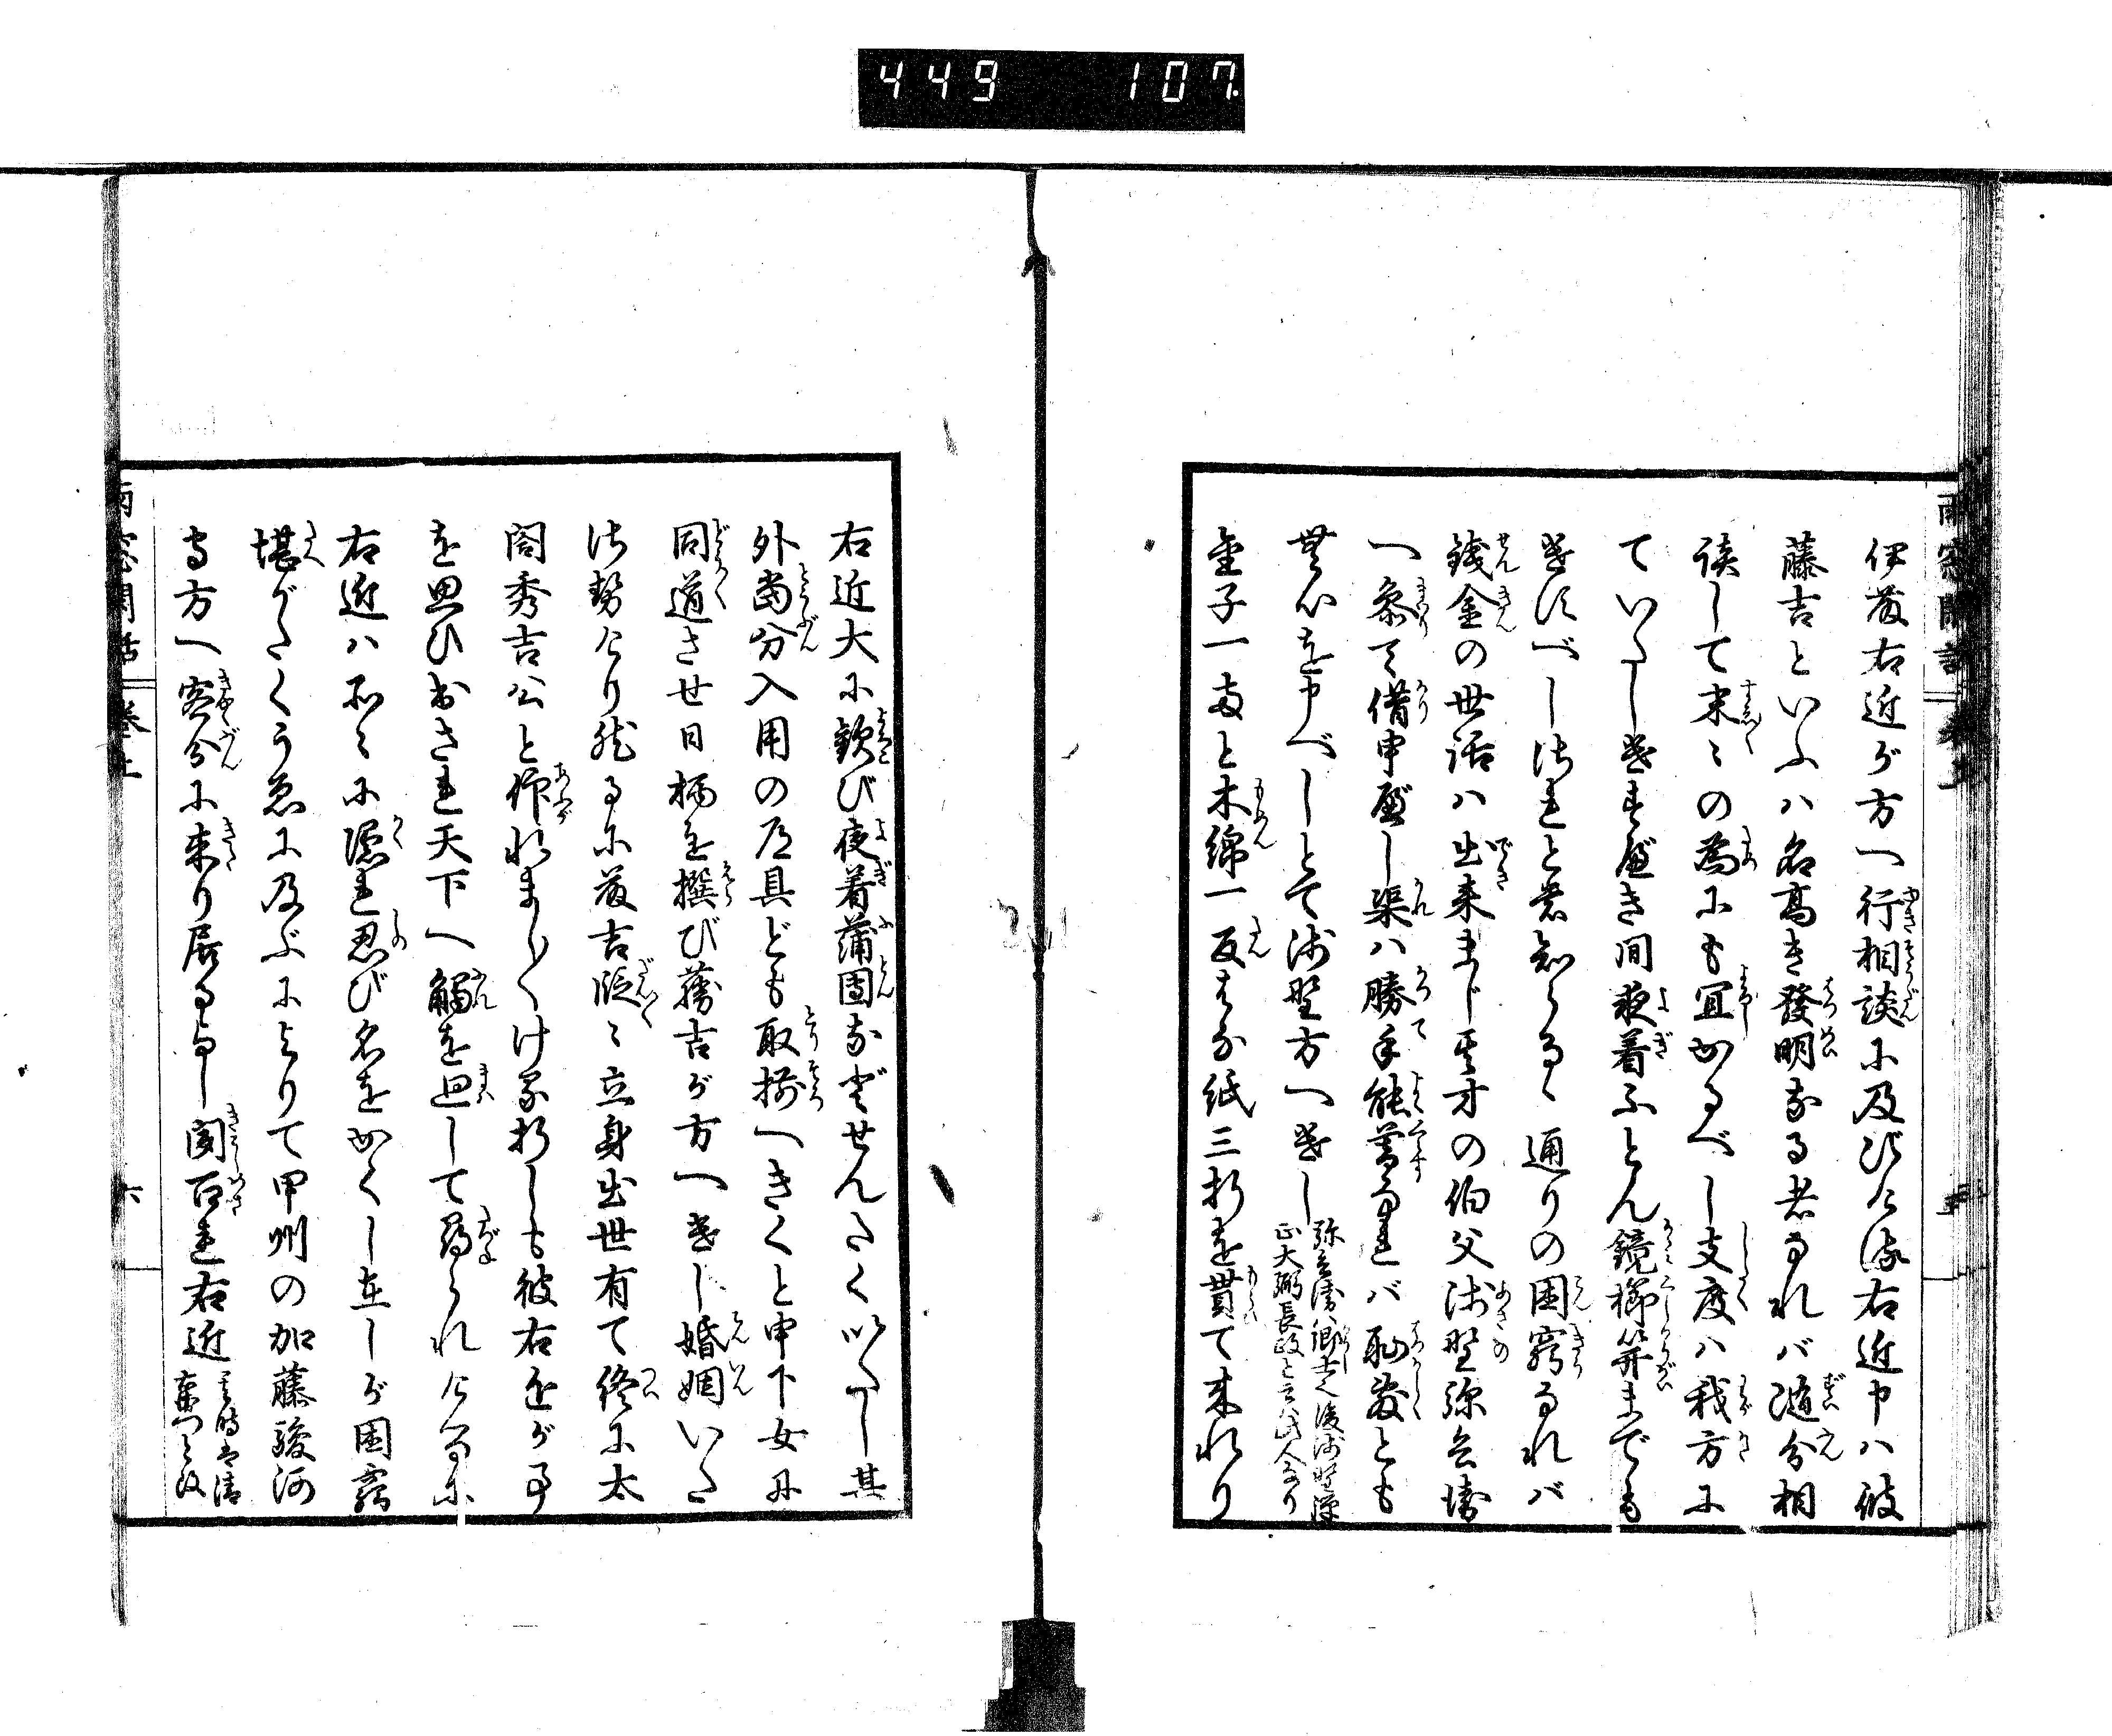 449 107
雨窓閑話
伊藤右近が方へ行相談に及びけるに右近申ハ彼
藤吉といふハ名高き發明なる者なれバ随分相
談して末〻の為にも宜かるべし支度ハ我方に
ていたし遣す遍き間夜着ふとん鏡櫛笄までも
遣すべし併しと其知らるゝ通りの困窮なれバ
銭金の世話ハ出来まじ其方の伯父浅野弥兵衛
へ参て借申遍し渠ハ勝手能暮なれバ聊宛とも
無心を申べしとて浅野方へ遣し
弥兵衛ハ郷士也後浅野弾
正大弼長政と云人なり
金子一両と木綿一反はな紙三折を貰て来れり
右近大に歓び夜着蒲団なぞせんたくいたし其
外当分入用の道具ども取揃へきくと申下女に
同道させ日柄を撰び藤吉が方へ遣し婚姻いた
させけり然るに藤吉段〻立身出世有て終に太
閤秀吉公と仰れまし〳〵ける折しも彼右近が事
を思ひ出され天下へ觸を廻して尋られけるに
右近ハ所〻に隠れ忍び名をかくし在しが困窮
堪がたくうゑに及ぶによりて甲州の加藤駿河
守方へ客分に来り居るよし聞召れ右近
其時は清
雨窓閑話 巻上 六